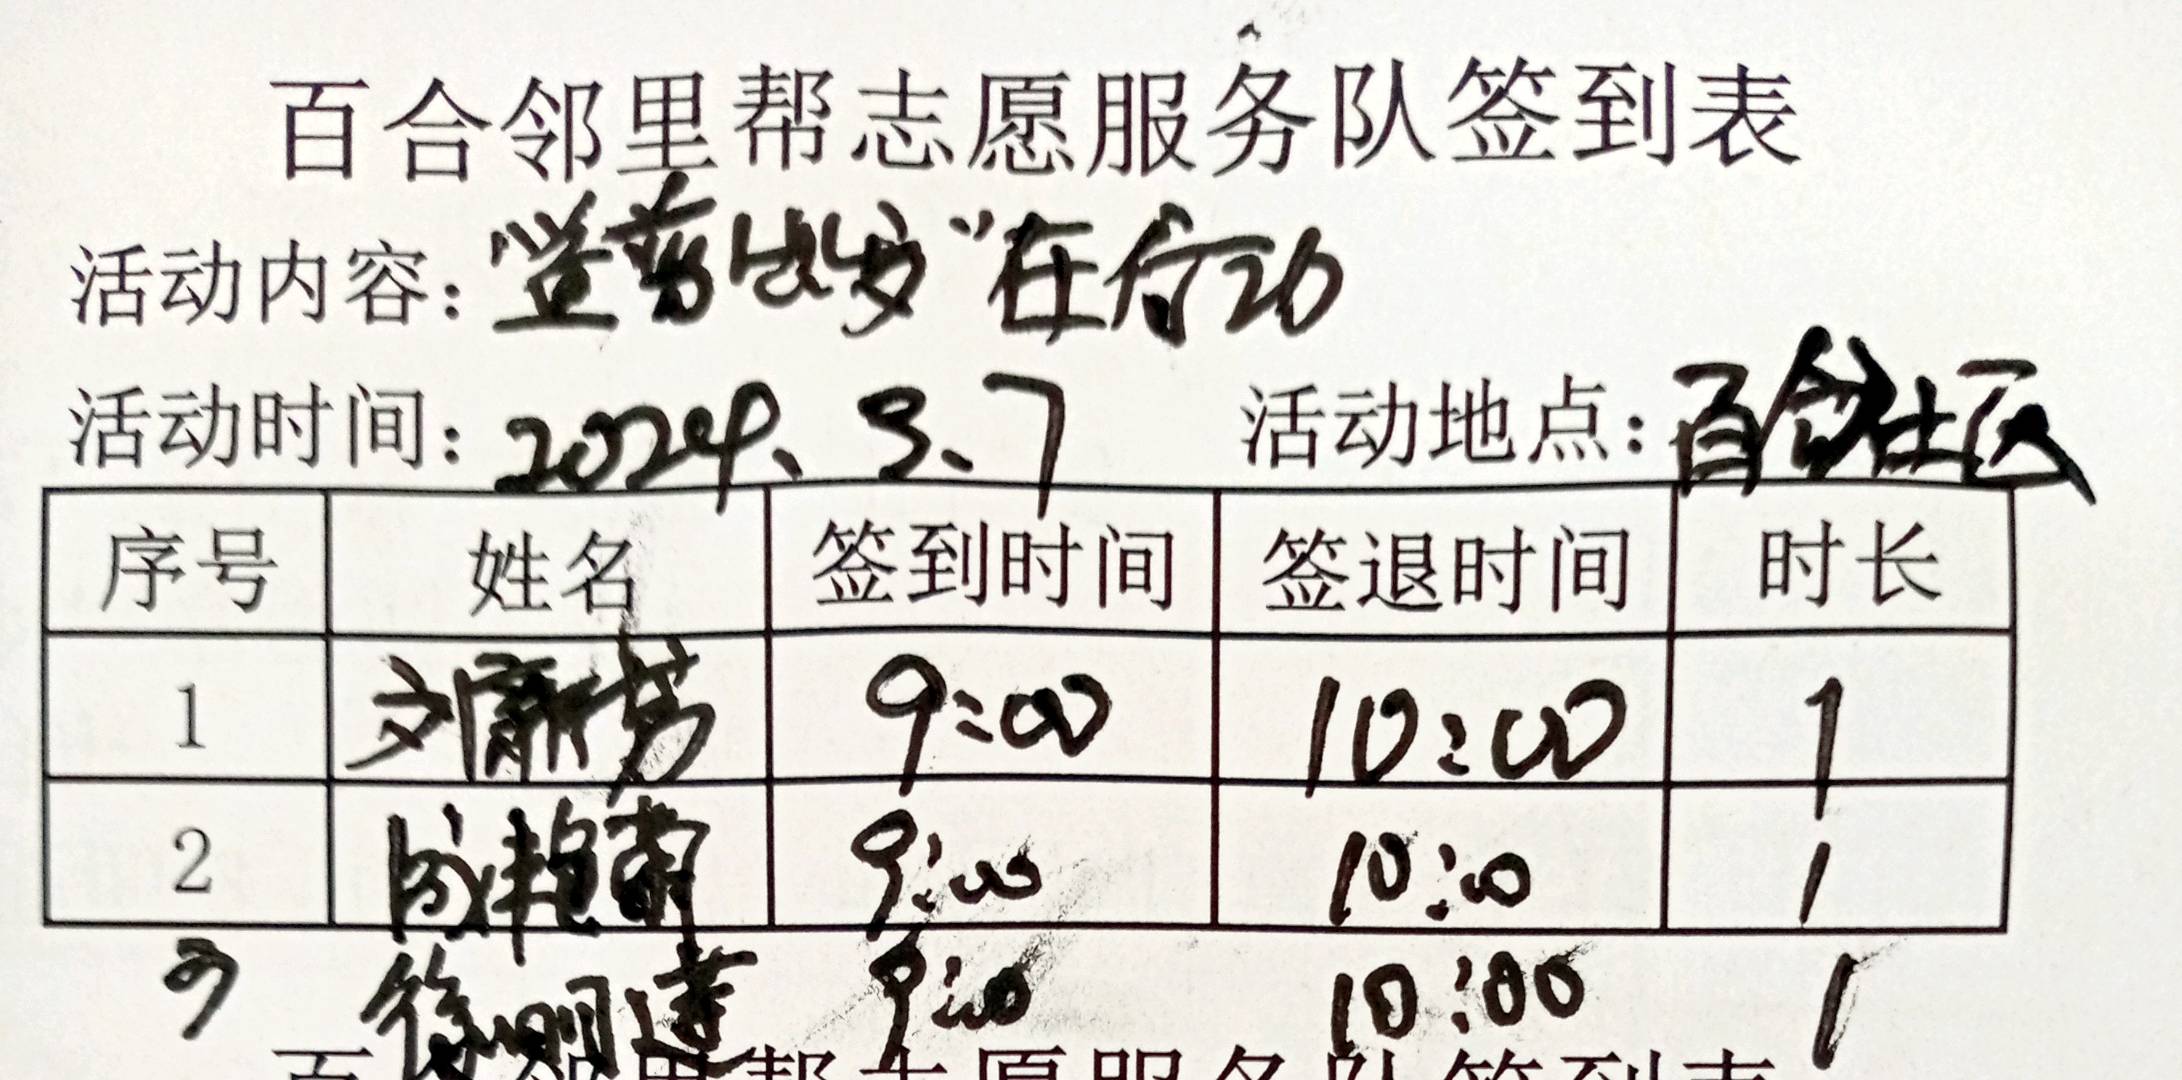 百合邻里帮志愿服务队签到表
活动内容："党葵出发"在行动
活动时间：2024、3、7 活动地点：百合社区
序号 姓名 签到时间 签退时间 时长
1 文 芳 9:00 10:00 1
2 成艳 9:00 10:00 1
3 徐明莲 9:00 10:00 1
百合邻里帮志愿服务队签到表